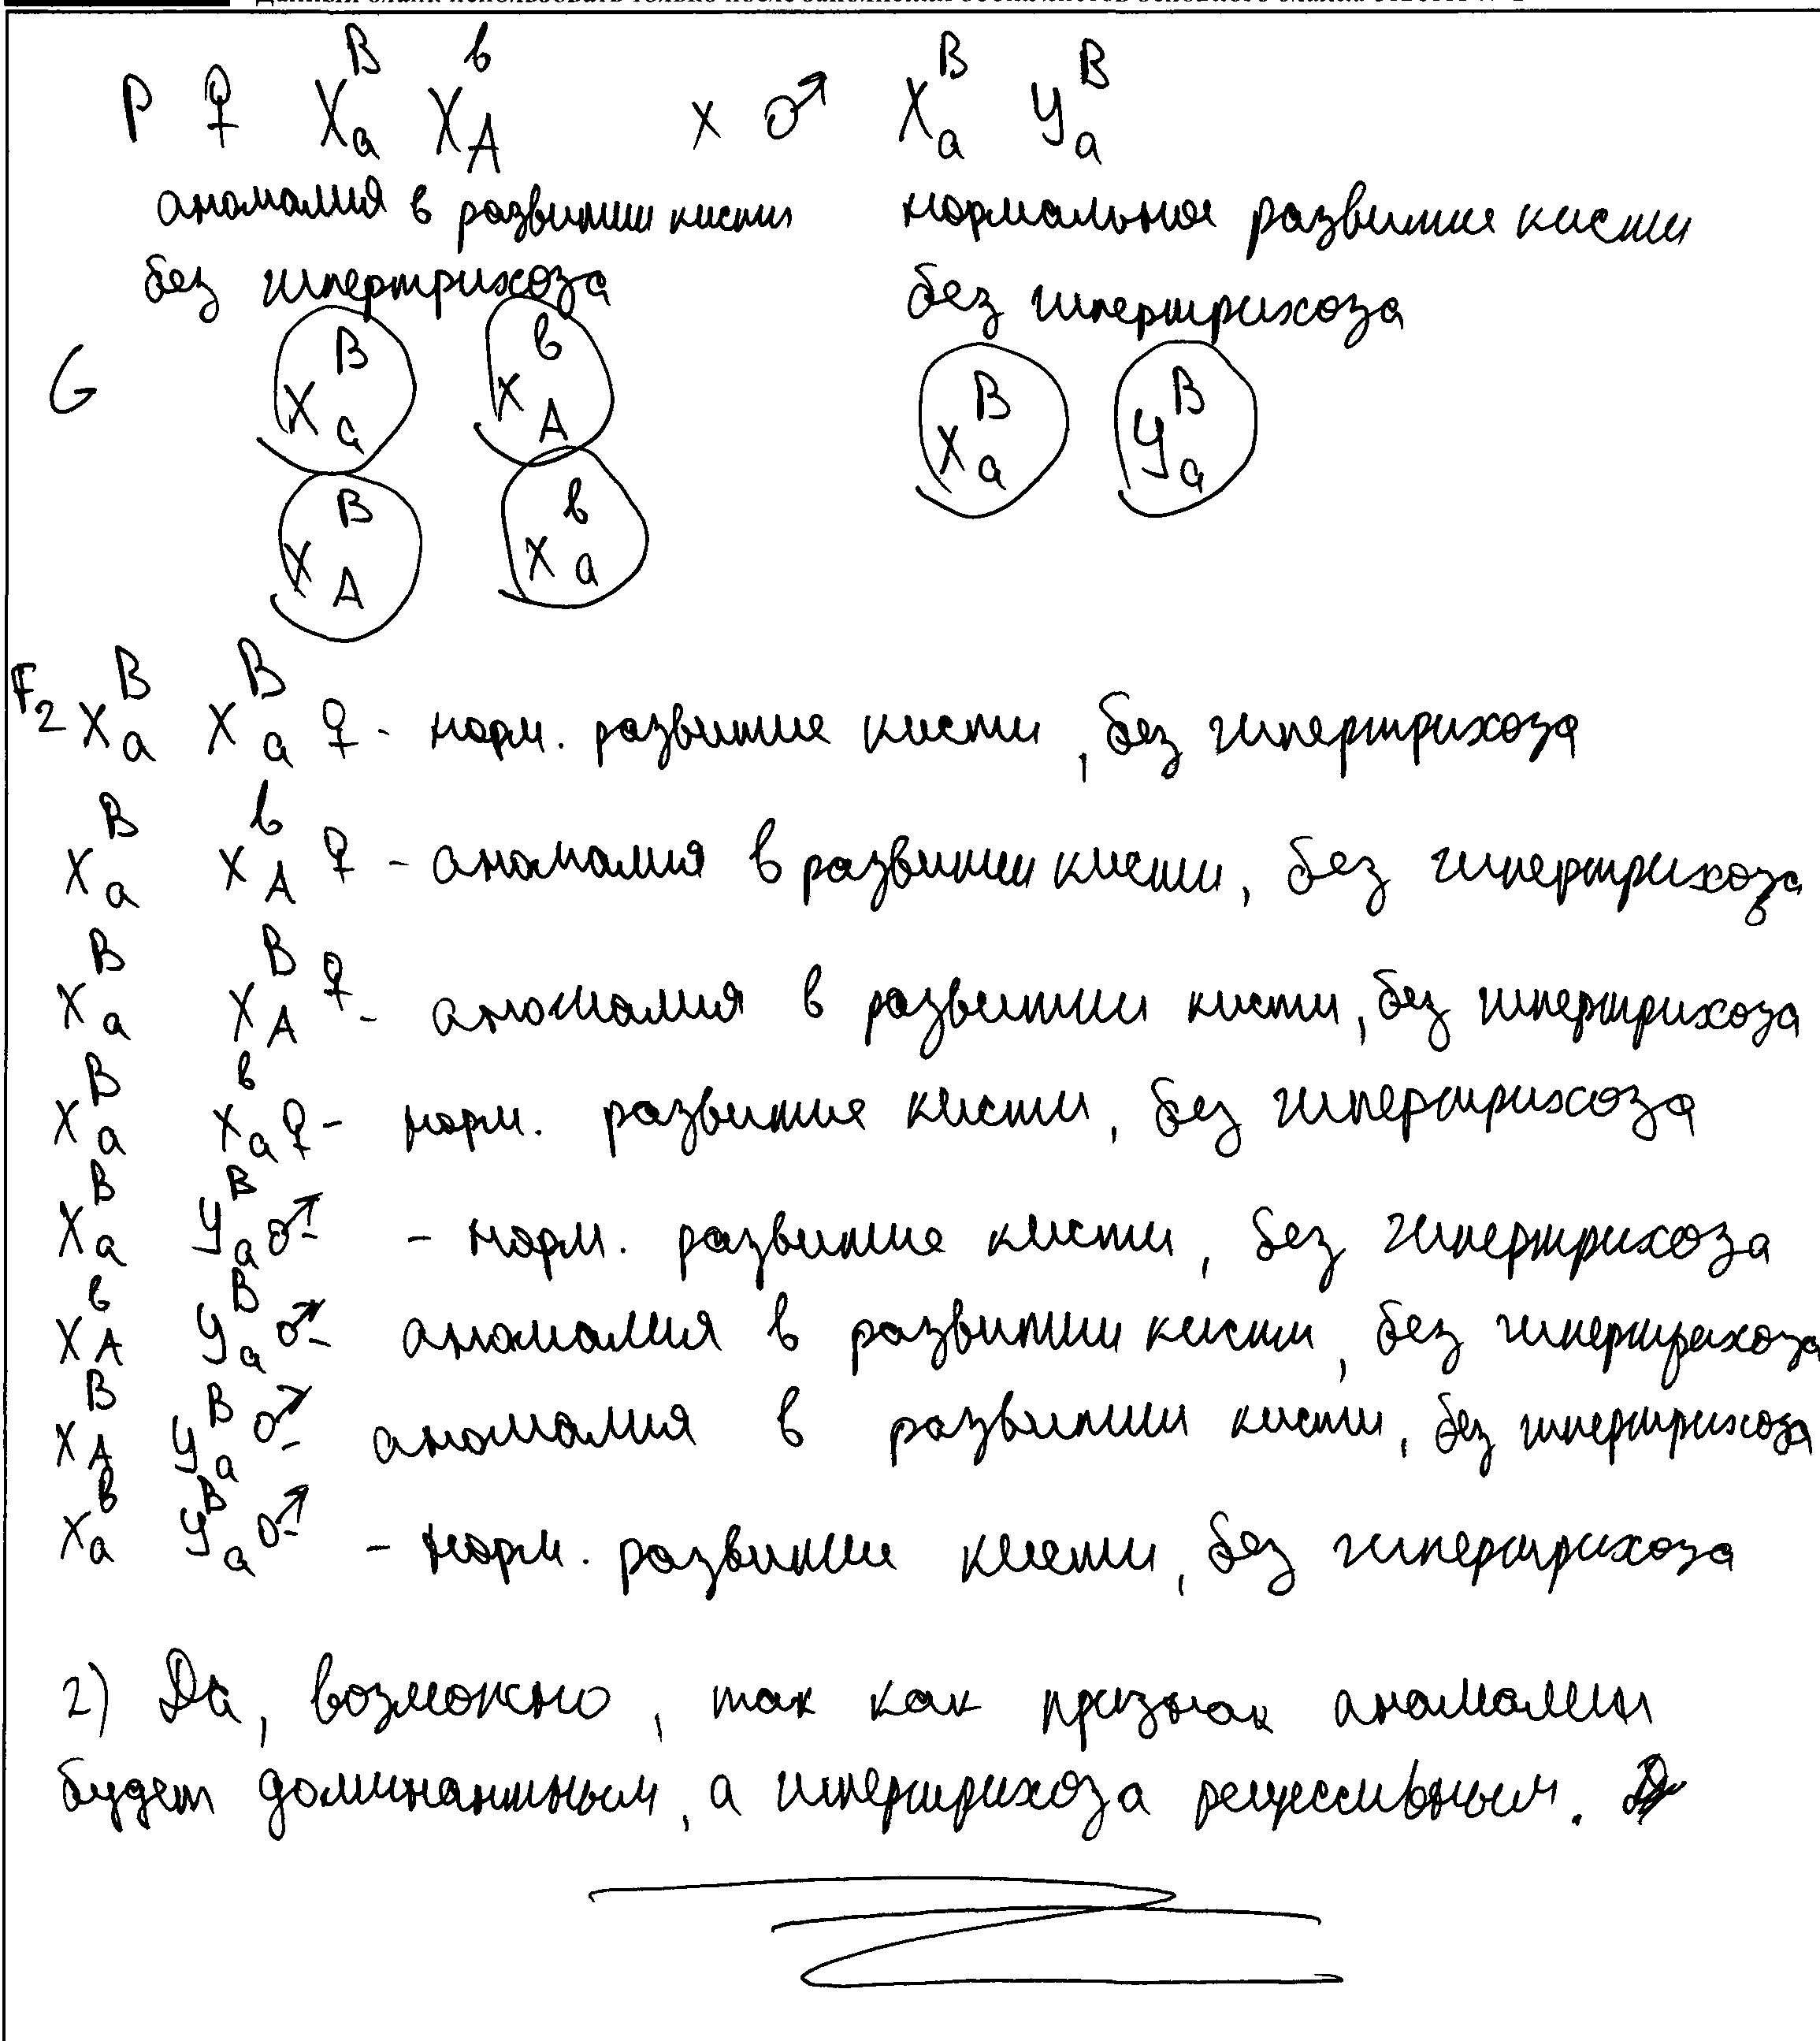 P ♀ X^B_a X^в_A х ♂ X^B_a У^B_a
аномалия в развитии кисти нормальное развитие кисти
без гипертрихоза без гипертрихоза
G X^B_a X^в_A X^B_a У^B_a
X^B_A X^в_a
F₂ X^B_a X^B_a ♀ - норм. развитие кисти, без гипертрихоза
X^B_a X^в_A ♀ - аномалия в развитии кисти, без гипертрихоза
X^B_a X^B_A ♀ - аномалия в развитии кисти, без гипертрихоза
X^B_a X^в_a ♀ - норм. развитие кисти, без гипертрихоза
X^B_a У^B_a ♂ - норм. развитие кисти, без гипертрихоза
X^в_A У^B_a ♂ - аномалия в развитии кисти, без гипертрихоза
X^B_A У^B_a ♂ - аномалия в развитии кисти, без гипертрихоза
X^в_a У^B_a ♂ - норм. развитие кисти, без гипертрихоза
2) Да, возможно, так как признак аномалии
будет доминантным, а гипертрихоза рецессивным.